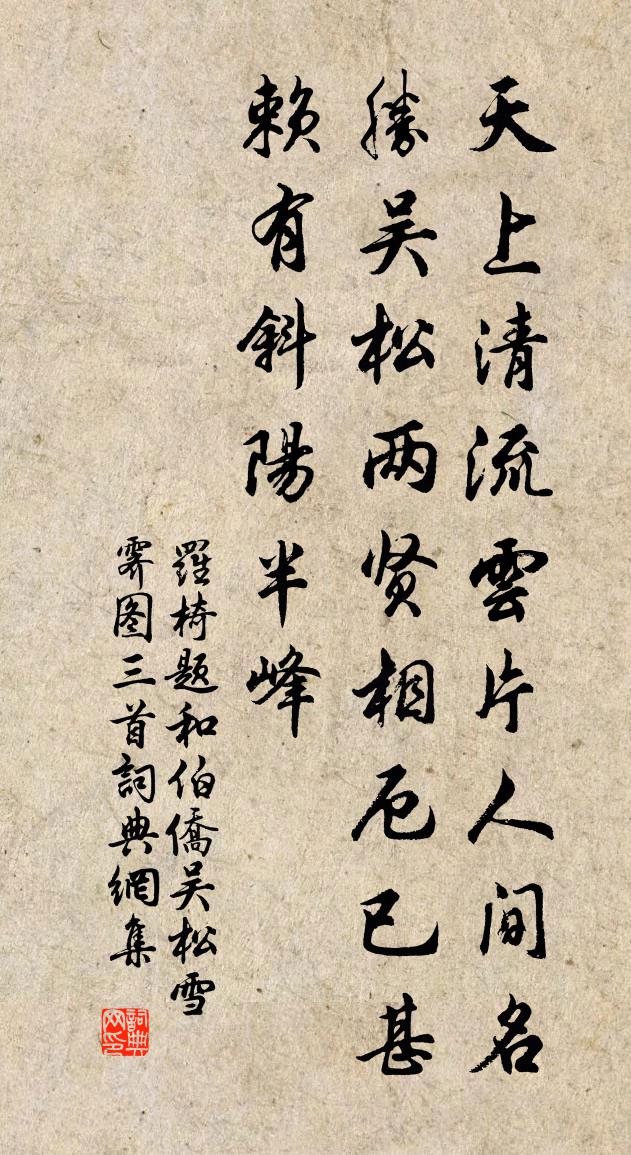 天上清流雲片人间名
勝吴松两贤相厄已甚
赖有斜陽半峰
羅椅题和伯僑吴松雪
霽图三首詞典網集
詞典网印